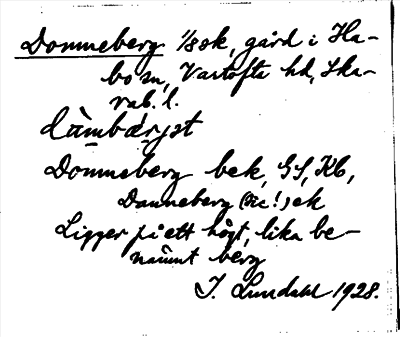 Dommeberg 1/8 ek, gård i Ha-
bo sn, Vartofta hd, Ska-
rab. l.
dåmbærjət
Dommeberg bek, GS, Kb,
Danneberg (sic!) ek
Ligger på ett högt, lika be-
nämnt berg
I. Lundahl 1928.